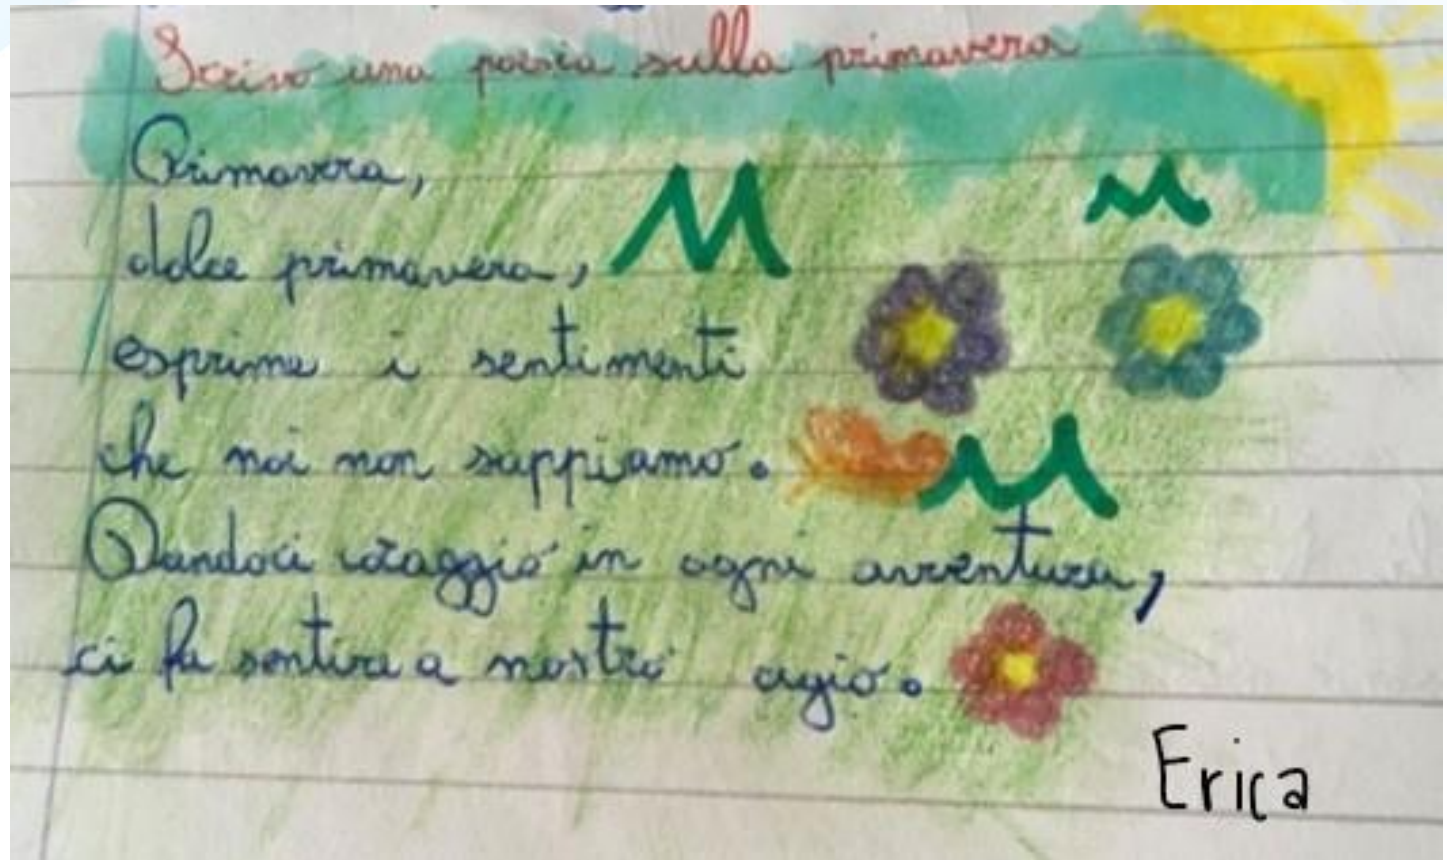 Scrivo una poesia sulla primavera
Primavera,
dolce primavera,
esprime i sentimenti
che noi non sappiamo.
Dandoci coraggio in ogni avventura,
ci fa sentire a nostro agio.
Erica